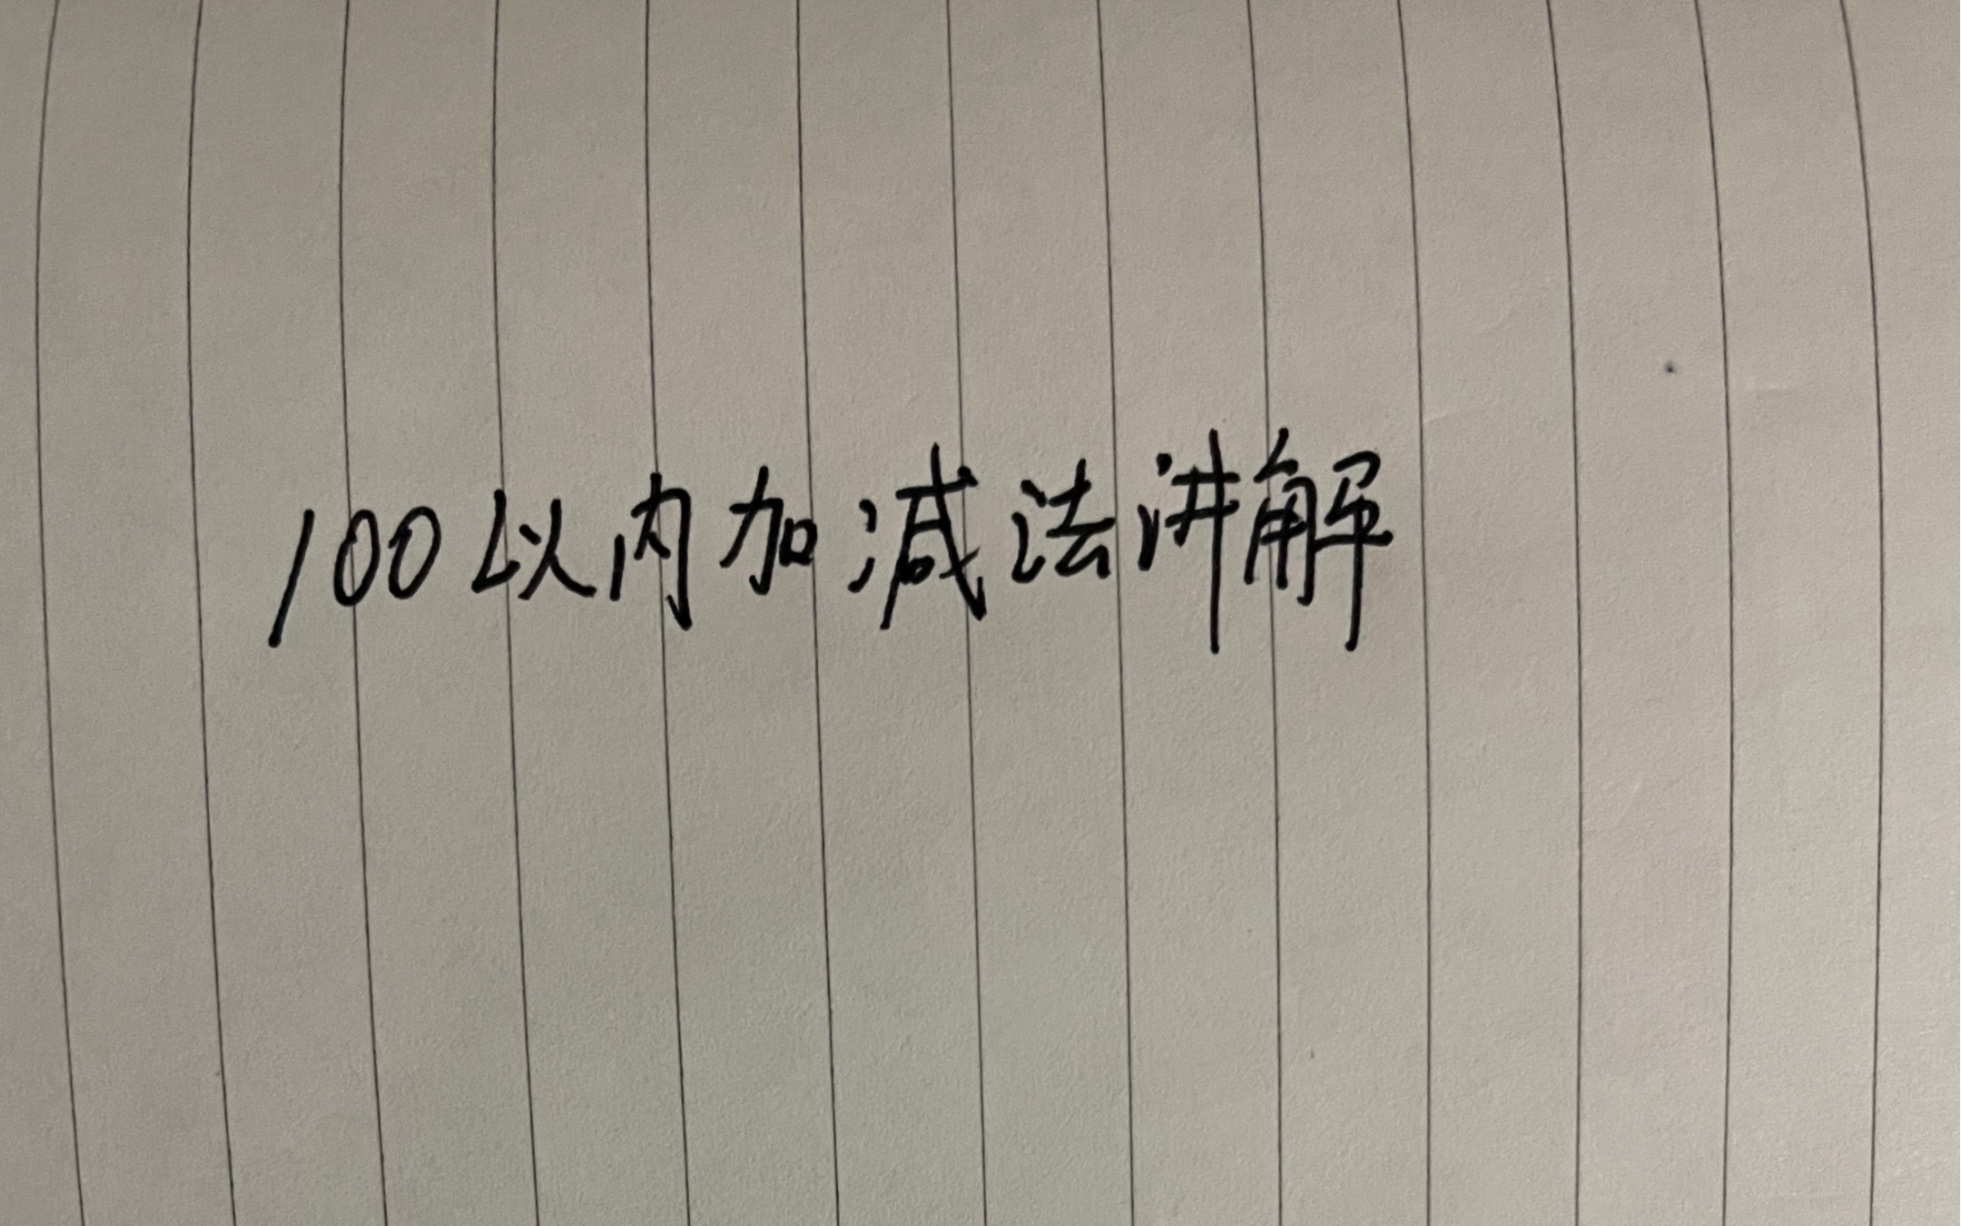 100以内加减法讲解